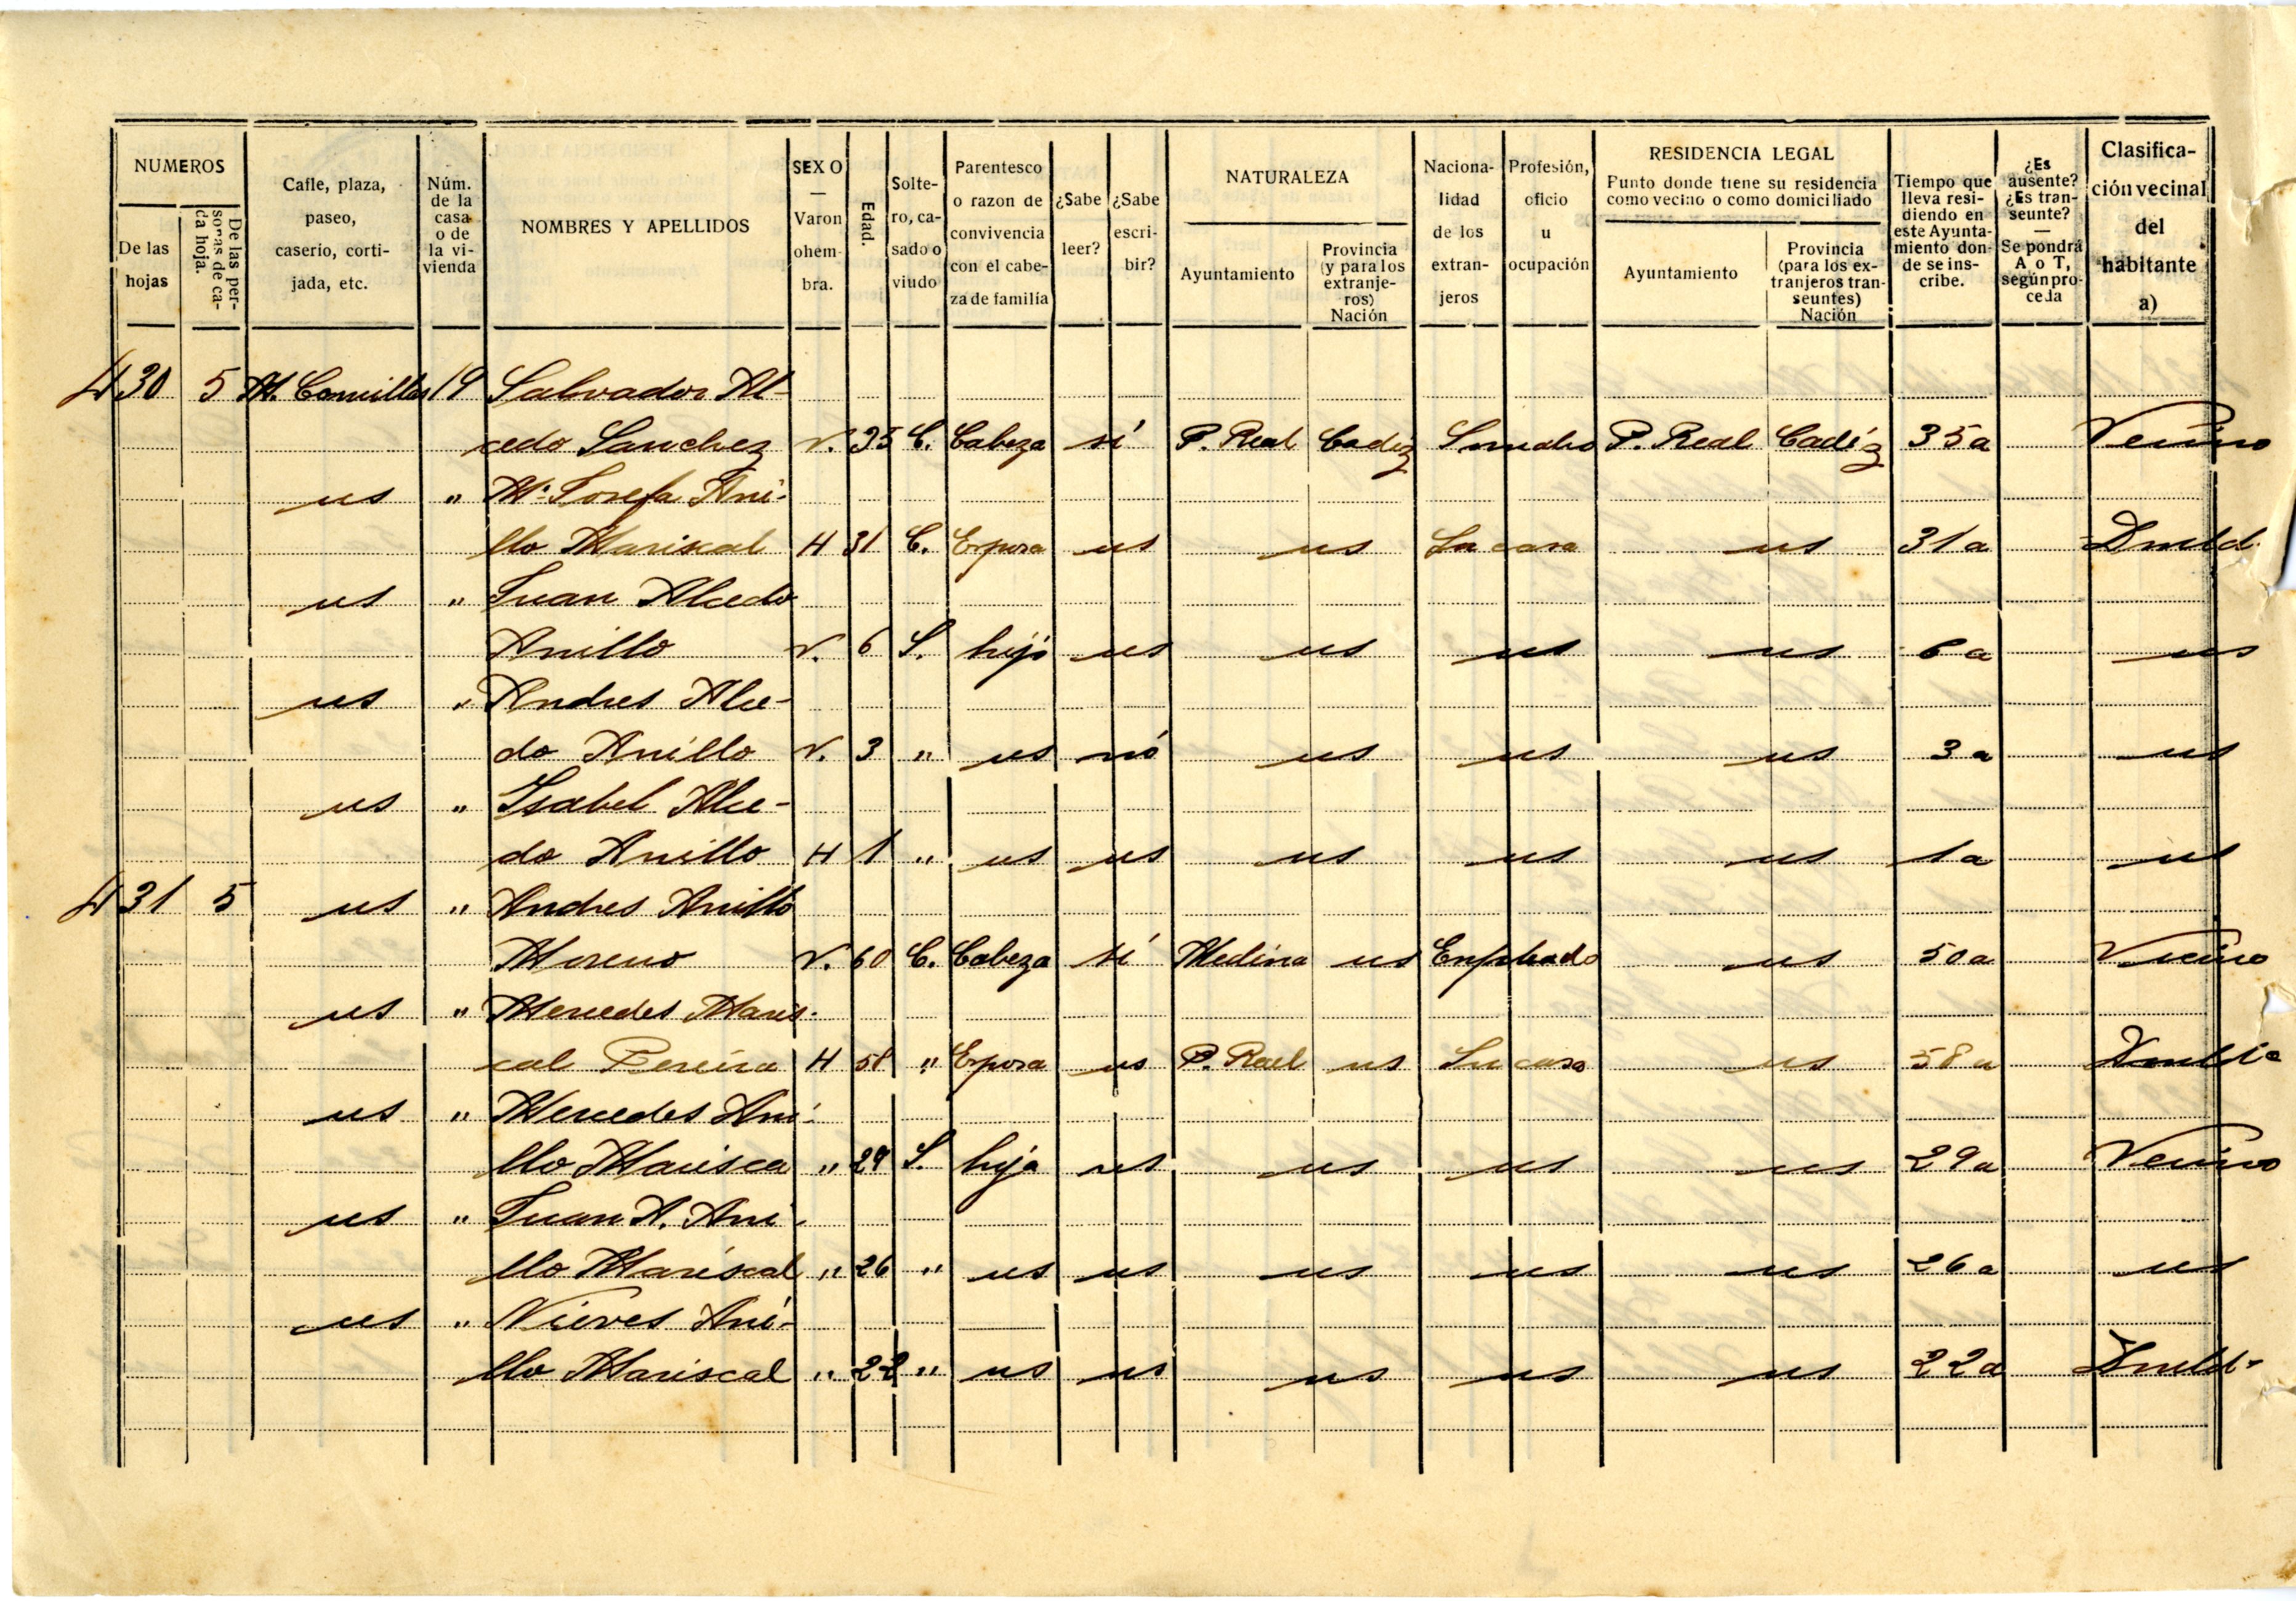 NUMEROS
De las hojas
De las per-
sonas de ca-
da hoja.
Calle, plaza,
paseo,
caserio, corti-
jada, etc.
Núm.
de la
casa
o de
la vi-
vienda
NOMBRES Y APELLIDOS
SEXO
—
Varon
o hem-
bra.
Edad.
Solte-
ro, ca-
sado o
viudo
Parentesco
o razon de
convivencia
con el cabe-
za de familia
¿Sabe
leer?
¿Sabe
escri-
bir?
NATURALEZA
Ayuntamiento
Provincia
(y para los
extranje-
ros)
Nación
Naciona-
lidad
de los
extran-
jeros
Profesión,
oficio
u
ocupación
RESIDENCIA LEGAL
Punto donde tiene su residencia
como vecino o como domiciliado
Ayuntamiento
Provincia
(para los ex-
tranjeros tran-
seuntes)
Nación
Tiempo que
lleva resi-
diendo en
este Ayunta-
miento don-
de se ins-
cribe.
¿Es
ausente?
¿Es tran-
seunte?
—
Se pondrá
A o T,
según pro-
ceda
Clasifica-
ción vecinal
del
habitante
a)
430 5 M. Comillas 19 Salvador Al-
cedo Sanchez V. 35 C. Cabeza sí P. Real Cadiz P. Real Cadiz 35 a Vecino
us " Mª Josefa Ani-
llo Mariscal H 31 C. Esposa us us Su casa us 31 a Domld.
us " Juan Alcedo
Anillo V. 6 S. hijo us us us us 6 a us
us " Andres Alce-
do Anillo V. 3 " us nó us us us 3 a us
us " Isabel Alce-
do Anillo H 1 " us us us us us 1 a us
431 5 us " Andres Anillo
Moreno V. 60 C. Cabeza sí Medina us Empleado us 50 a Vecino
us " Mercedes Maris-
cal Pereira H 58 " Esposa us P. Real us Su casa us 58 a
us " Mercedes Ani-
llo Marisca " 29 S. hija us us us us 29 a Vecino
us " Juan A. Ani-
llo Mariscal " 26 " us us us us us 26 a us
us " Nieves Ani-
llo Mariscal " 22 " us us us us us 22 a Domld-